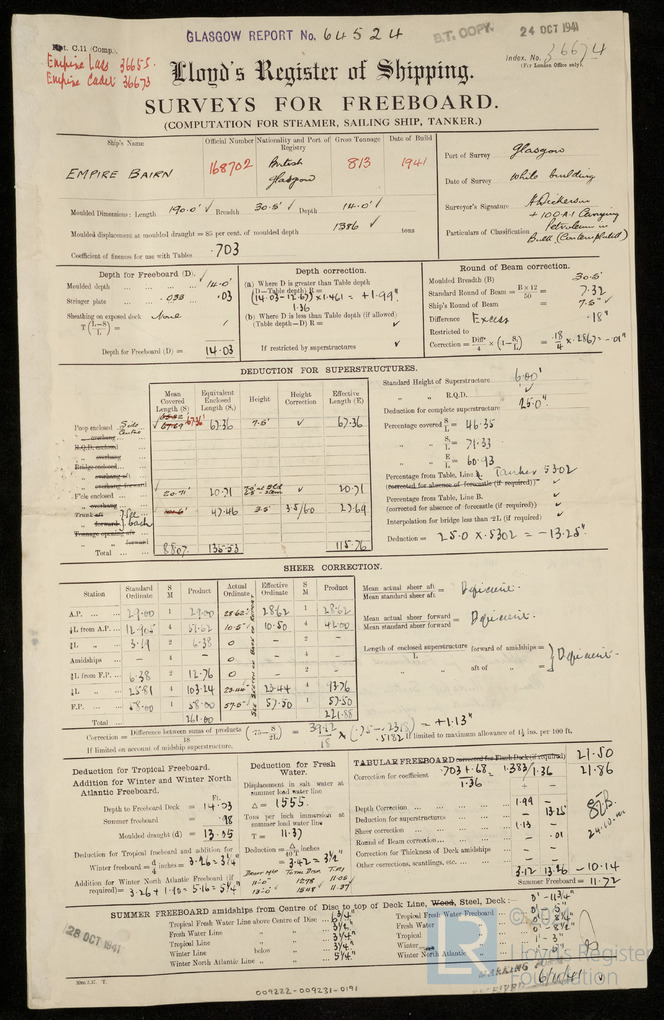 GLASGOW REPORT No. 64524
B.T. COPY.
24 OCT 1941
Rpt. C.11 (Comp).
Index. No. 36674
(For London Office only).
Empire Lass 36655.
Empire Cadet 36673
Lloyd's Register of Shipping.
SURVEYS FOR FREEBOARD.
(COMPUTATION FOR STEAMER, SAILING SHIP, TANKER.)
Ship's Name
Official Number
Nationality and Port of Registry
Gross Tonnage
Date of Build
EMPIRE BAIRN
168702
British
Glasgow
813
1941
Port of Survey Glasgow
Date of Survey While building
Surveyor's Signature
Particulars of Classification +100.A.1 Carrying
Petroleum in
Bulk (Contemplated)
Moulded Dimensions: Length 190.0' Breadth 30.5' Depth 14.0'
Moulded displacement at moulded draught = 85 per cent. of moulded depth 1386 tons
Coefficient of fineness for use with Tables .703
Depth for Freeboard (D).
Moulded depth ... 14.0'
Stringer plate ... .038 .03
Sheathing on exposed deck None
T(L-S/L) =
Depth for Freeboard (D) = 14.03
Depth correction.
(a) Where D is greater than Table depth
(D-Table depth) R =
(14.03-12.67) x 1.461 = +1.99"
1.36
(b) Where D is less than Table depth (if allowed)
(Table depth-D) R =
If restricted by superstructures
Round of Beam correction.
Moulded Breadth (B) 30.5'
Standard Round of Beam = B×12/50 = 7.32
Ship's Round of Beam = 7.5"
Difference Excess .18"
Restricted to
Correction = Diff/4 × (1-S₁/L) = .18/4 x .2867 = -.01"
DEDUCTION FOR SUPERSTRUCTURES.
Mean Covered Length (S)
Equivalent Enclosed Length (S₁)
Height
Height Correction
Effective Length (E)
Poop enclosed 67.36' 67.36 7.5' 67.36
overhang
R.Q.D. enclosed
overhang
Bridge enclosed
overhang aft
overhang forward
F'cle enclosed 20.71' 20.71 20.71
Trunk aft 47.46 3.5' 3.5/6.0 27.69
forward
Tonnage opening aft
forward
Total 88.07 135.53 115.76
Standard Height of Superstructure 6.00'
" " R.Q.D.
Deduction for complete superstructure 25.0"
Percentage covered S/L = 46.35
" " S₁/L = 71.33
" " E/L = 60.93
Percentage from Table, Line A. Tanker 5302
(corrected for absence of forecastle (if required))
Percentage from Table, Line B.
(corrected for absence of forecastle (if required))
Interpolation for bridge less than .2L (if required)
Deduction = 25.0 x .5302 = -13.25"
SHEER CORRECTION.
Station
Standard Ordinate
S M
Product
Actual Ordinate
Effective Ordinate
S M
Product
A.P. 29.00 1 29.00 28.62 28.62 1 28.62
¼L from A.P. 12.905 4 51.62 10.5" 10.50 4 42.00
¼L " 3.19 2 6.38 0 - 2 -
Amidships - 4 - 0 - 4 -
¼L from F.P. 6.38 2 12.76 0 - 2 -
¼L " 25.81 4 103.24 23.44 23.44 4 93.76
F.P. 58.00 1 58.00 57.5" 57.50 1 57.50
Total 261.00 221.88
Mean actual sheer aft / Mean standard sheer aft = Deficient.
Mean actual sheer forward / Mean standard sheer forward = Deficient.
Length of enclosed superstructure / L forward of amidships =
aft of " = Deficient.
Correction = Difference between sums of products / 18 (.75-S/2L) = 39.12/18 x (.75-.2318) = +1.13"
.5182
If limited on account of midship superstructure.
If limited to maximum allowance of 1½ ins. per 100 ft.
Deduction for Tropical Freeboard.
Addition for Winter and Winter North Atlantic Freeboard.
Ft.
Depth to Freeboard Deck = 14.03
Summer freeboard = .98
Moulded draught (d) = 13.05
Deduction for Tropical freeboard and addition for Winter freeboard = d/4 inches = 3.26 = 3¼"
Addition for Winter North Atlantic Freeboard (if required) = 3.26 + 1.90 = 5.16 = 5¼"
Deduction for Fresh Water.
Displacement in salt water at summer load water line
Δ = 1555.
Tons per inch immersion at summer load water line
T = 11.37
Deduction = Δ/40T inches
= 3.42 = 3½"
TABULAR FREEBOARD corrected for Flush Deck (if required) 21.50
Correction for coefficient .703+.68/1.36 = 1.383/1.36 21.86
+ -
Depth Correction 1.99
Deduction for superstructures 13.25
Sheer correction 1.13
Round of Beam correction .01
Correction for Thickness of Deck amidships
Other corrections, scantlings, etc.
3.12 13.26 -10.14
Summer Freeboard = 11.72
SUMMER FREEBOARD amidships from Centre of Disc to top of Deck Line, Wood, Steel, Deck:-
Tropical Fresh Water Line above Centre of Disc 6¾"
Fresh Water Line " " 3½"
Tropical Line " " 3¼"
Winter Line below " 3¼"
Winter North Atlantic Line " " 5¼"
0' - 11¾"
Tropical Fresh Water Freeboard
Fresh Water " 0' - 8¼"
Tropical " 0' - 8½"
Winter " 1' - 3"
Winter North Atlantic "
28 OCT 1941
6/11/41
Lloyd's Register
Foundation
LR
©
3000 5.37. T.
009222-009231-0191